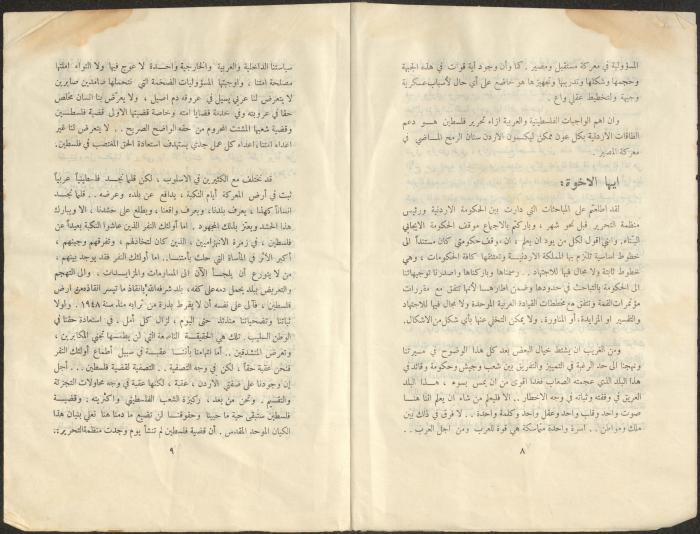 المسؤولية في معركة مستقبل ومصير . كما وأن وجود أية قوات في هذه الجبهة
وحجمها وشكلها وتدريبها وتجهيزها هو خاضع على أي حال لأسباب عسكرية
وجيهة ولتخطيط عقلي واع .
وان اهم الواجبات الفلسطينية والعربية ازاء تحرير فلسطين هـو دعم
الطاقات الاردنية بكل عون ممكن ليكسون الاردن سنان الرمح الماضي في
معركة المصير .
ايها الاخوة :
لقد اطلعتم على المباحثات التي دارت بين الحكومة الاردنية ورئيس
منظمة التحرير قبل نحو شهر ، وباركتم بالاجماع موقف الحكومة الايجابي
البناء. وانني اقول لكل من يود ان يعلم ، ان موقف حكومتي كان مستنداً الى
خطوط اساسية تلتزم بها المملكة الاردنية وتعتنقها كافة الحكومات ، وهي
خطوط ثابتة ولا مجال فيها للاجتهاد .. رسمناها وباركناها واصدرنا توجيهاتنا
الى الحكومة بالتباحث في حدودها وضمن اطارها لانها تتفق مع مقررات
مؤتمرات القمة وتتفق مع مخططات القيادة العربية الموحدة ولا مجال فيها للاجتهاد
والتفسير او المزايدة، أو المناورة. ولا يمكن التخلي عنها بأي شكل من الاشكال.
ومن الغريب ان يشتط خيال البعض بعد كل هذا الوضوح في مسيرتنا
ونهجنا الى حد الرغبة في التمييز والتفريق بين شعب وجيش وحكومة وقائد في
هذا البلد الذي عجمته الصعاب فغدا اقوى من ان يمس بسوء ، هـذا البلد
العريق في وقفته وثباته في وجه الاخطار .. الا فليعلم من شاء ان يعلم اننا هنا
صوت واحد وقلب واحد وعقل واحد وكلمة واحدة .. لا فرق في ذلك بين
ملك ومواطن .. اسرة واحدة متماسكة هي قوة للعرب ومن اجل العرب ..
٨
سياستنا الداخلية والعربية والخارجية واحـدة لا عوج فيها ولا التواء املتها
مصلحة امتنا ، واوجبتها المسؤوليات الضخمة التي نتحملها صامدين صابرين
لا يتعرض لنا عربي يسيل في عروقه دم اصيل ، ولا يعرّض بنا انسان مخلص
حقا في عروبته وفي خدمة قضايا امته وخاصة قضيتها الاولى قضية فلسطين
وقضية شعبها المشتت المحروم من حقه الواضح الصريح .. لا يتعرض لنا غير
اعداء امتنا، اعداء كل عمل جدي يستهدف استعادة الحق المغتصب في فلسطين.
قد نختلف مع الكثيرين في الاسلوب ، لكن قلما نجـد فلسطينياً عربياً
ثبت في أرض المعركة أيام النكبة ، يدافع عن بلده وعرضه .. قلما نجـد
انساناً كهذا ، يعرف بلدنا، ويعرف واقعنا ، ويطلع على حشدنا ، الا ويبارك
هذا الحشد ويعتز بذلك المجهود . اما أولئك النفر الذين عاشوا النكبة بعيداً عن
فلسطين ، في زمرة الانهزاميين ، الذين كان لتخاذلهم ، وتفرقهم وجبنهم ،
أكبر الأثر في المأساة التي حلت بأمتنا.. اما أولئك النفر فقد يوجد بينهم ،
من لا يتورع أن يلجـأ الآن الى المساومات والمزايـدات .. والى التهجم
والتعريض ببلد يحمل دمه على كفه ، بلد شرفه الله بانقاذ ما تيسر انقاذه من ارض
فلسطين ، فآلى على نفسه أن لا يفرط بذرة من ترابه منذ سنة ١٩٤٨ . ولولا
ثباتنا وتضحياتنا منذئذ حتى اليوم ، لزال كل أمل . في استعادة حقنا في
الوطن السليب . تلك هي الحقيقـة الناصعة التي لن يطمسها تجني المكابرين ،
وتعرض المتشدقين .. أما اتهامنا بأننـا عقبـة في سبيل أطماع أولئك النفر
فنحن عقبة حقاً ، لكن في وجه التصفية .. التصفية لقضية فلسطين ... أجل
إن وجودنا على ضفتي الاردن ، عقبة ، لكنها عقبة في وجه محاولات التجزئة
والتقسيم . ونحن من بعد ، ركيزة الشعب الفلسطيني واكثريته ، وقضيـة
فلسطين ستبقى حية ما حيينا وحقوقنـا لن تضيع ما دمنا هنا نعلي بنيان هذا
الكيان الموحد المقدس . أن قضية فلسطين لم تنشأ يوم وجدت منظمة التحرير.
٩